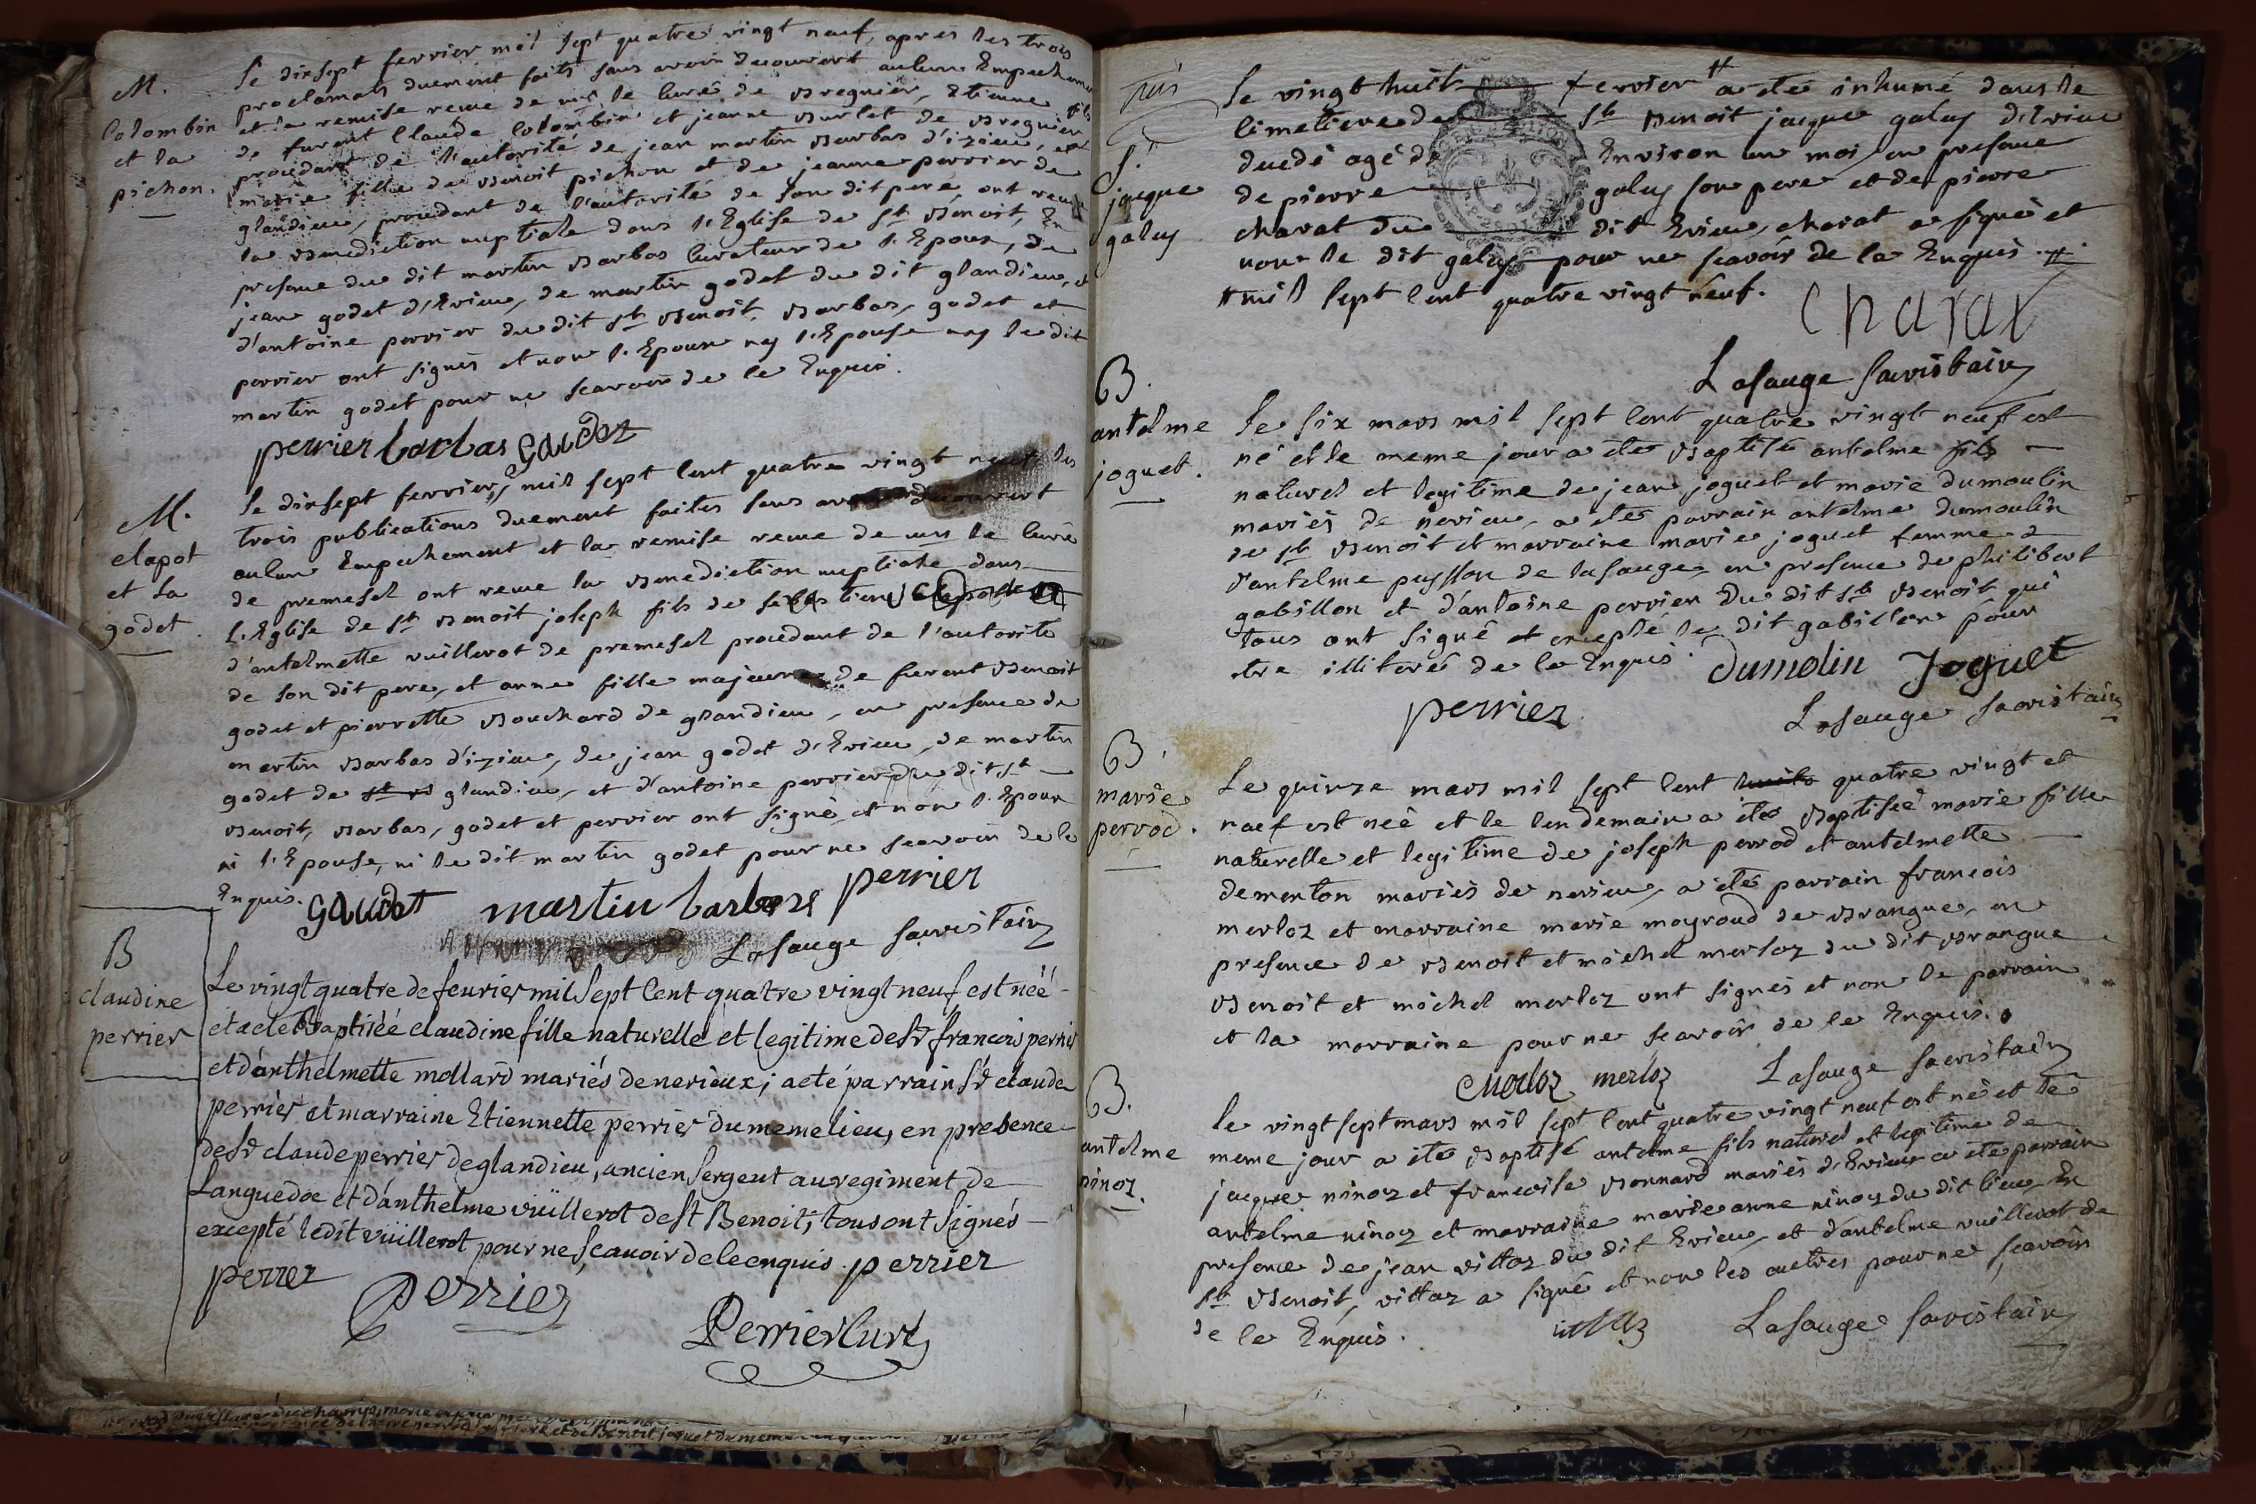 M.
Colombin
et la
pichon.
Le dixsept fevrier mil sept quatre vingt neuf, apres les trois
proclamats duement faits sans avoir decouvert aulun Empechement
et la remise reçue de mr le curé de Bregnier, Etienne fils
de furent Claude Colombin et jeanne Burlet de Bregnier
procedant de l'autorité de jean martin Barbas d'izieu, et
marie fille de Benoit pichon et de jeanne perrier de
glandieu, procedant de l'autorité de son dit pere ont reçus
la Benediction nuptiale dans l'Eglise de St Benoit, En
presence du dit martin Barbas Curateur de l'Epoux, de
jean godet d'Evieu, de martin godet du dit glandieu, et
d'antoine perrier du dit St Benoit, Barbas, godet et
perrier ont signés et non l'Epoux ny l'Epouse ny le dit
martin godet pour ne scavoir de le Enquis.
perrier barbas gaudet
M.
clapot
et La
godet.
Le dixsept fevrier, mil sept cent quatre vingt neuf les
trois publications duement faites sans avoir decouvert
aulun Empechement et la remise reçue de mr le curé
de premesel ont reçue la Benediction nuptiale dans
L'Eglise de St Benoit joseph fils de sebastien Clapot et
d'antelmette vuillerot de premesel procedant de l'autorité
de son dit pere, et anne fille majeure de furent Benoit
godet et pierrette Bouchard de glandieu, en presence de
martin Barbas d'izieu, de jean godet d'Evieu, de martin
godet de glandieu, et d'antoine perrier du dit St
Benoit, Barbas, godet et perrier ont signé, et non l'Epoux
ni l'Epouse, ni le dit martin godet pour ne scavoir de le
Enquis. gaudet martin barbas perrier
Lasauge sacristain
B
claudine
perrier
Le vingt quatre de feurier mil Sept Cent quatre vingt neuf est née
et a eté Baptisée claudine fille naturelle et legitime de Sr francois perrier
et d'anthelmette mollard mariés de nerieux; a eté parrain Sr claude
perrier et marraine Etiennette perrier du meme lieu, en presence
de Sr claude perrier de glandieu, ancien Sergent au regiment de
Languedoc et d'anthelme vüillerot de St Benoit; tous ont Signés
excepté ledit vüillerot pour ne Scauoir de le enquis. perrier
perrer
perrier
Perrier Curé
S.
jacque
galey
Le vingt huit fevrier # a eté inhumé dans le
Cimetiere de St Benoit jacque galey d'Evieu
decedé agé d'Environ un moi, en presence
de pierre galey son pere et de pierre
charat du dit Evieu, charat a signé et
non le dit galey pour ne scavoir de le Enquis. #
# mil sept Cent quatre vingt neuf.
charat
Lasauge Sacristain
B.
antelme
joguet.
Le six mars mil sept Cent quatre vingt neuf est
né et le meme jour a eté Baptisé antelme fils
naturel et legitime de jean joguet et marie dumoulin
mariés de nerieu, a eté parrain antelme dumoulin
de St Benoit et marraine marie joguet femme
d'antelme puysson de lasauge, en presence de philibert
gabillon et d'antoine perrier Du dit St Benoit qui
tous ont signé et excepté le dit gabillon pour
etre illiteré de le Enquis. Dumolin Joguet
perrier Lasauge sacristain
B
marie
perrod.
Le quinze mars mil sept Cent huits quatre vingt et
neuf est née et le lendemain a eté Baptisée marie fille
naturelle et legitime de joseph perrod et antelmette
dementon mariés de nerieu, a eté parrain francois
merloz et marraine marie mayroud de Brangue, en
presence de Benoit et michel merloz du dit Brangue
Benoit et michel merloz ont signés et non le parrain
et la marraine pour ne scavoir de le Enquis.
Merloz merloz Lasauge sacristain
B.
antelme
ninoz.
Le vingt sept mars mil sept Cent quatre vingt neuf est né et le
meme jour a eté Baptisé antelme fils naturel et legitime de
jacque ninoz et francoise Bonnard mariés d'Evieux a eté parrain
antelme ninoz et marraine marie anne ninoz du dit lieu, En
presence de jean vittoz du dit Evieu, et d'antelme vuillerot de
St Benoit, vittoz a signé et non les autres pour ne scavoir
de le Enquis. vittoz Lasauge Sacristain